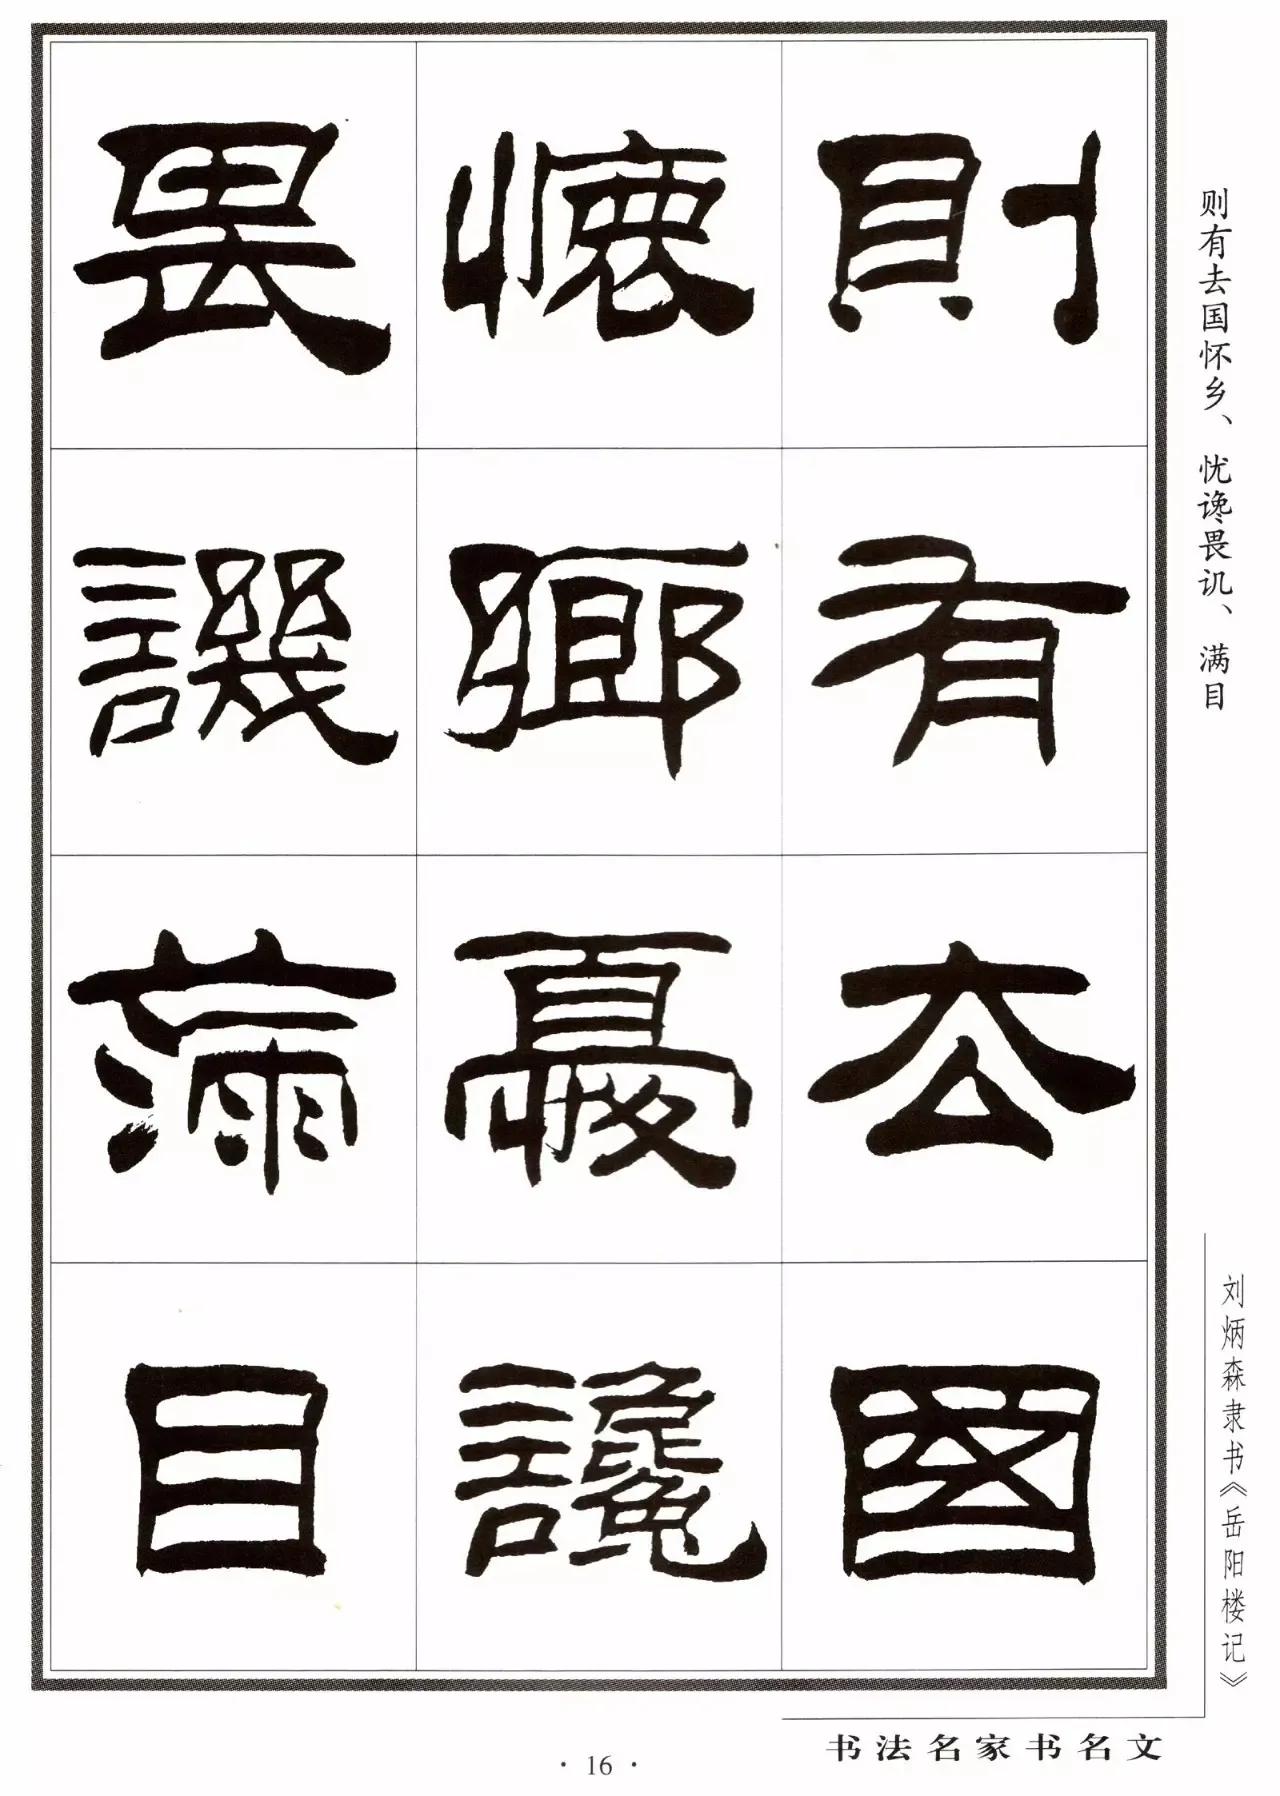 則有去國
懷鄉憂讒
畏譏滿目
则有去国怀乡、忧谗畏讥、满目
刘炳森隶书《岳阳楼记》
书法名家书名文
·16·